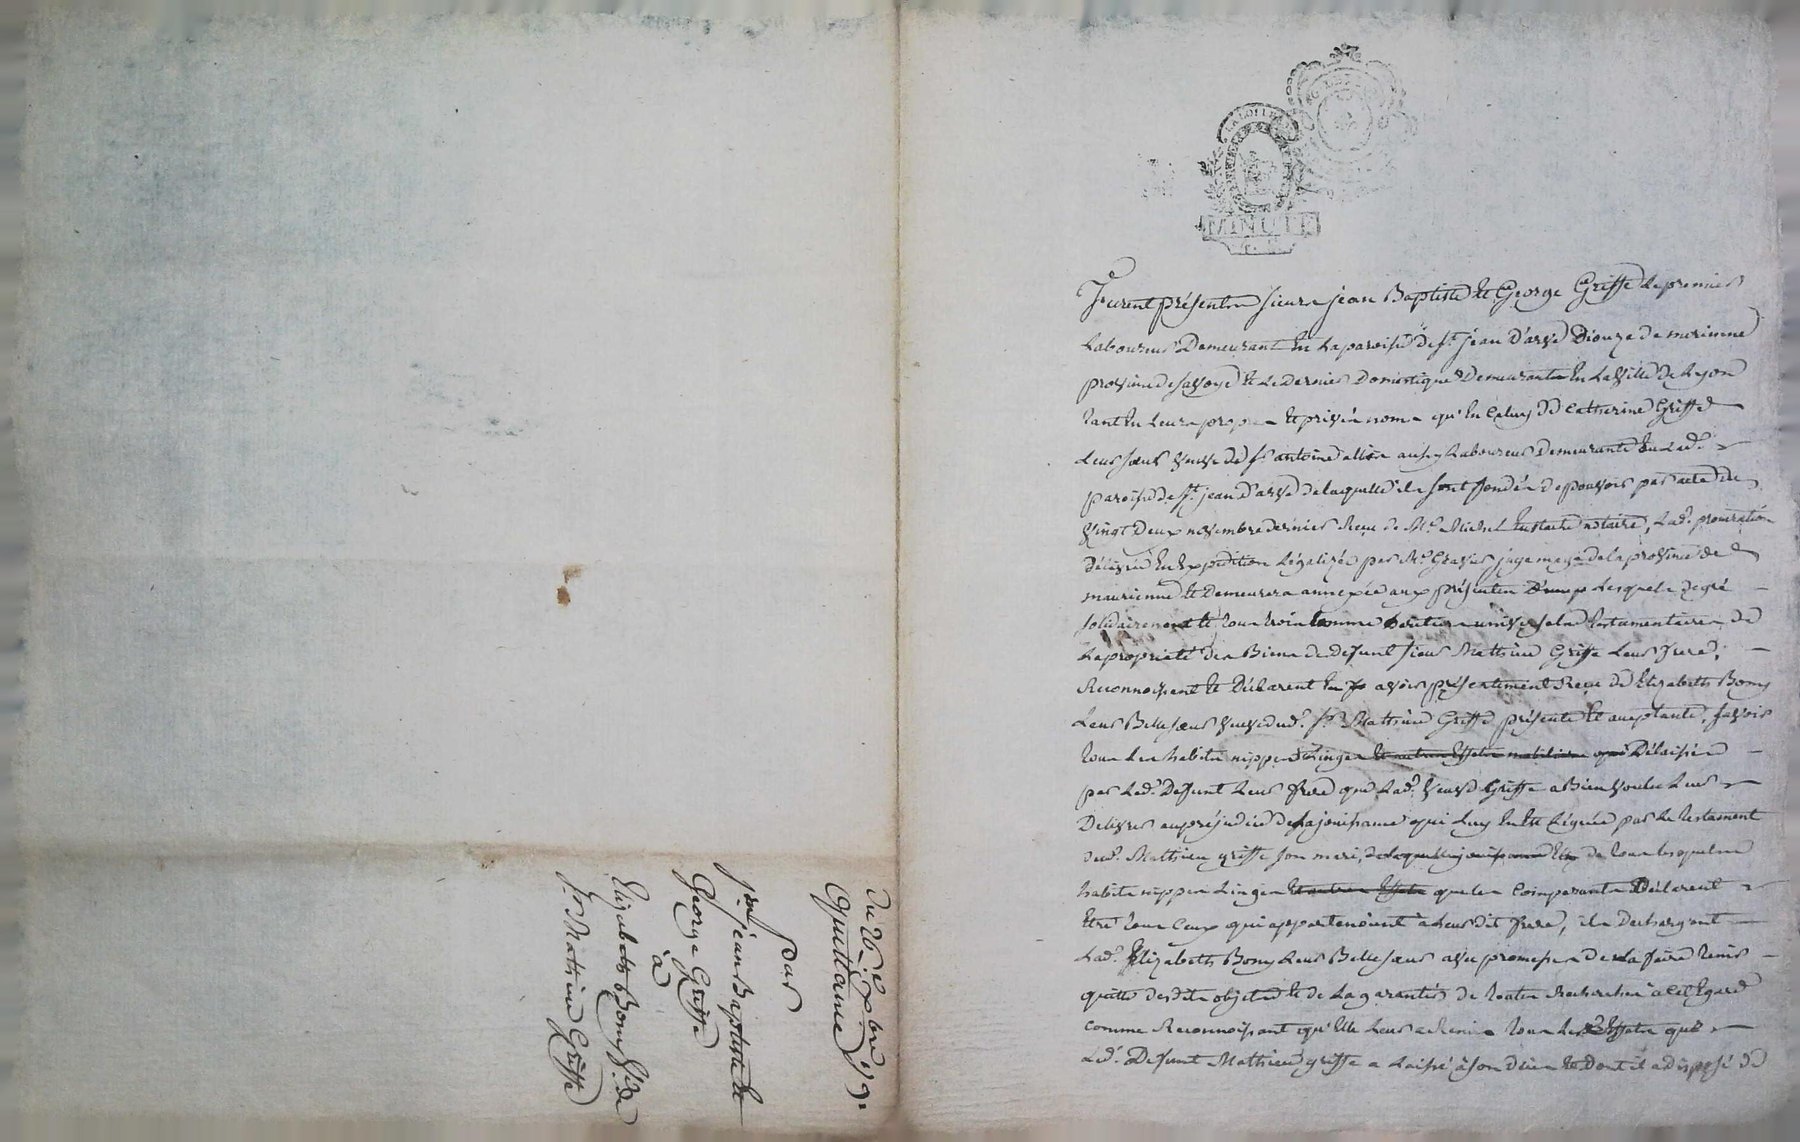 du 26 Xbre 179
Quittance
par
Srs jean Baptiste et
George Griffe
à
Elizabeth Bony Ve de
Sr Mathieu Griffe
LA LOI
MINUTE
Furent présents sieurs jean Baptiste et George Griffe le premier
Laboureur Demeurant en la paroisse de St jean D'arve Diouze de morienne
province de savoye et le Dernier Domestique Demeurant en la ville de Lyon
tant en leurs propres et privés noms qu'en celuy de Catherine Griffe
leur sœur veuve de Sr antoine aussy Laboureur Demeurante en lad.
paroisse de St jean d'arve de laquelle ils sont fondés de pouvoir par acte du
vingt Deux novembre dernier Reçu de Me Michel notaire, lad. procuration
Délivrée en Expédition Légalisée par Mr juge mage de la province de
maurienne et Demeurera annexée aux présentes lesquels de gré
solidairement et tous trois comme héritiers universels testamentaires de
la propriété des Biens de defunt sieur Mathieu Griffe leur frere,
Reconnoissent et Déclarent avoir présentement Reçu de Elizabeth Bony
leur Belle sœur veuve dud. Sr Mathieu Griffe présente et acceptante, savoir
tous les habits nippes Linges et autres Effets mobiliers que Délaissés
par led. Defunt leur frere que lad. veuve Griffe a Bien voulu leur
Delivrer au préjudice de la jouissance qui luy en Est léguée par le testament
dud. Mathieu griffe son mari, de laquelle jouissance de tous lesquels
habits nippes Linges et autres Effets que les Comparants Déclarent
Etre tous ceux qui appartenoient a leur dit frere, ils Dechargent
Lad. Elizabeth Bony leur Belle sœur avec promesse de la faire tenir
quitte desdits objets et de la garantir de toutes Recherches a cet Egard
comme Reconnoissant qu'Elle leur a Remis tous les Effets que
led. Defunt Mathieu griffe a Laissé à son décès et dont il a disposé de